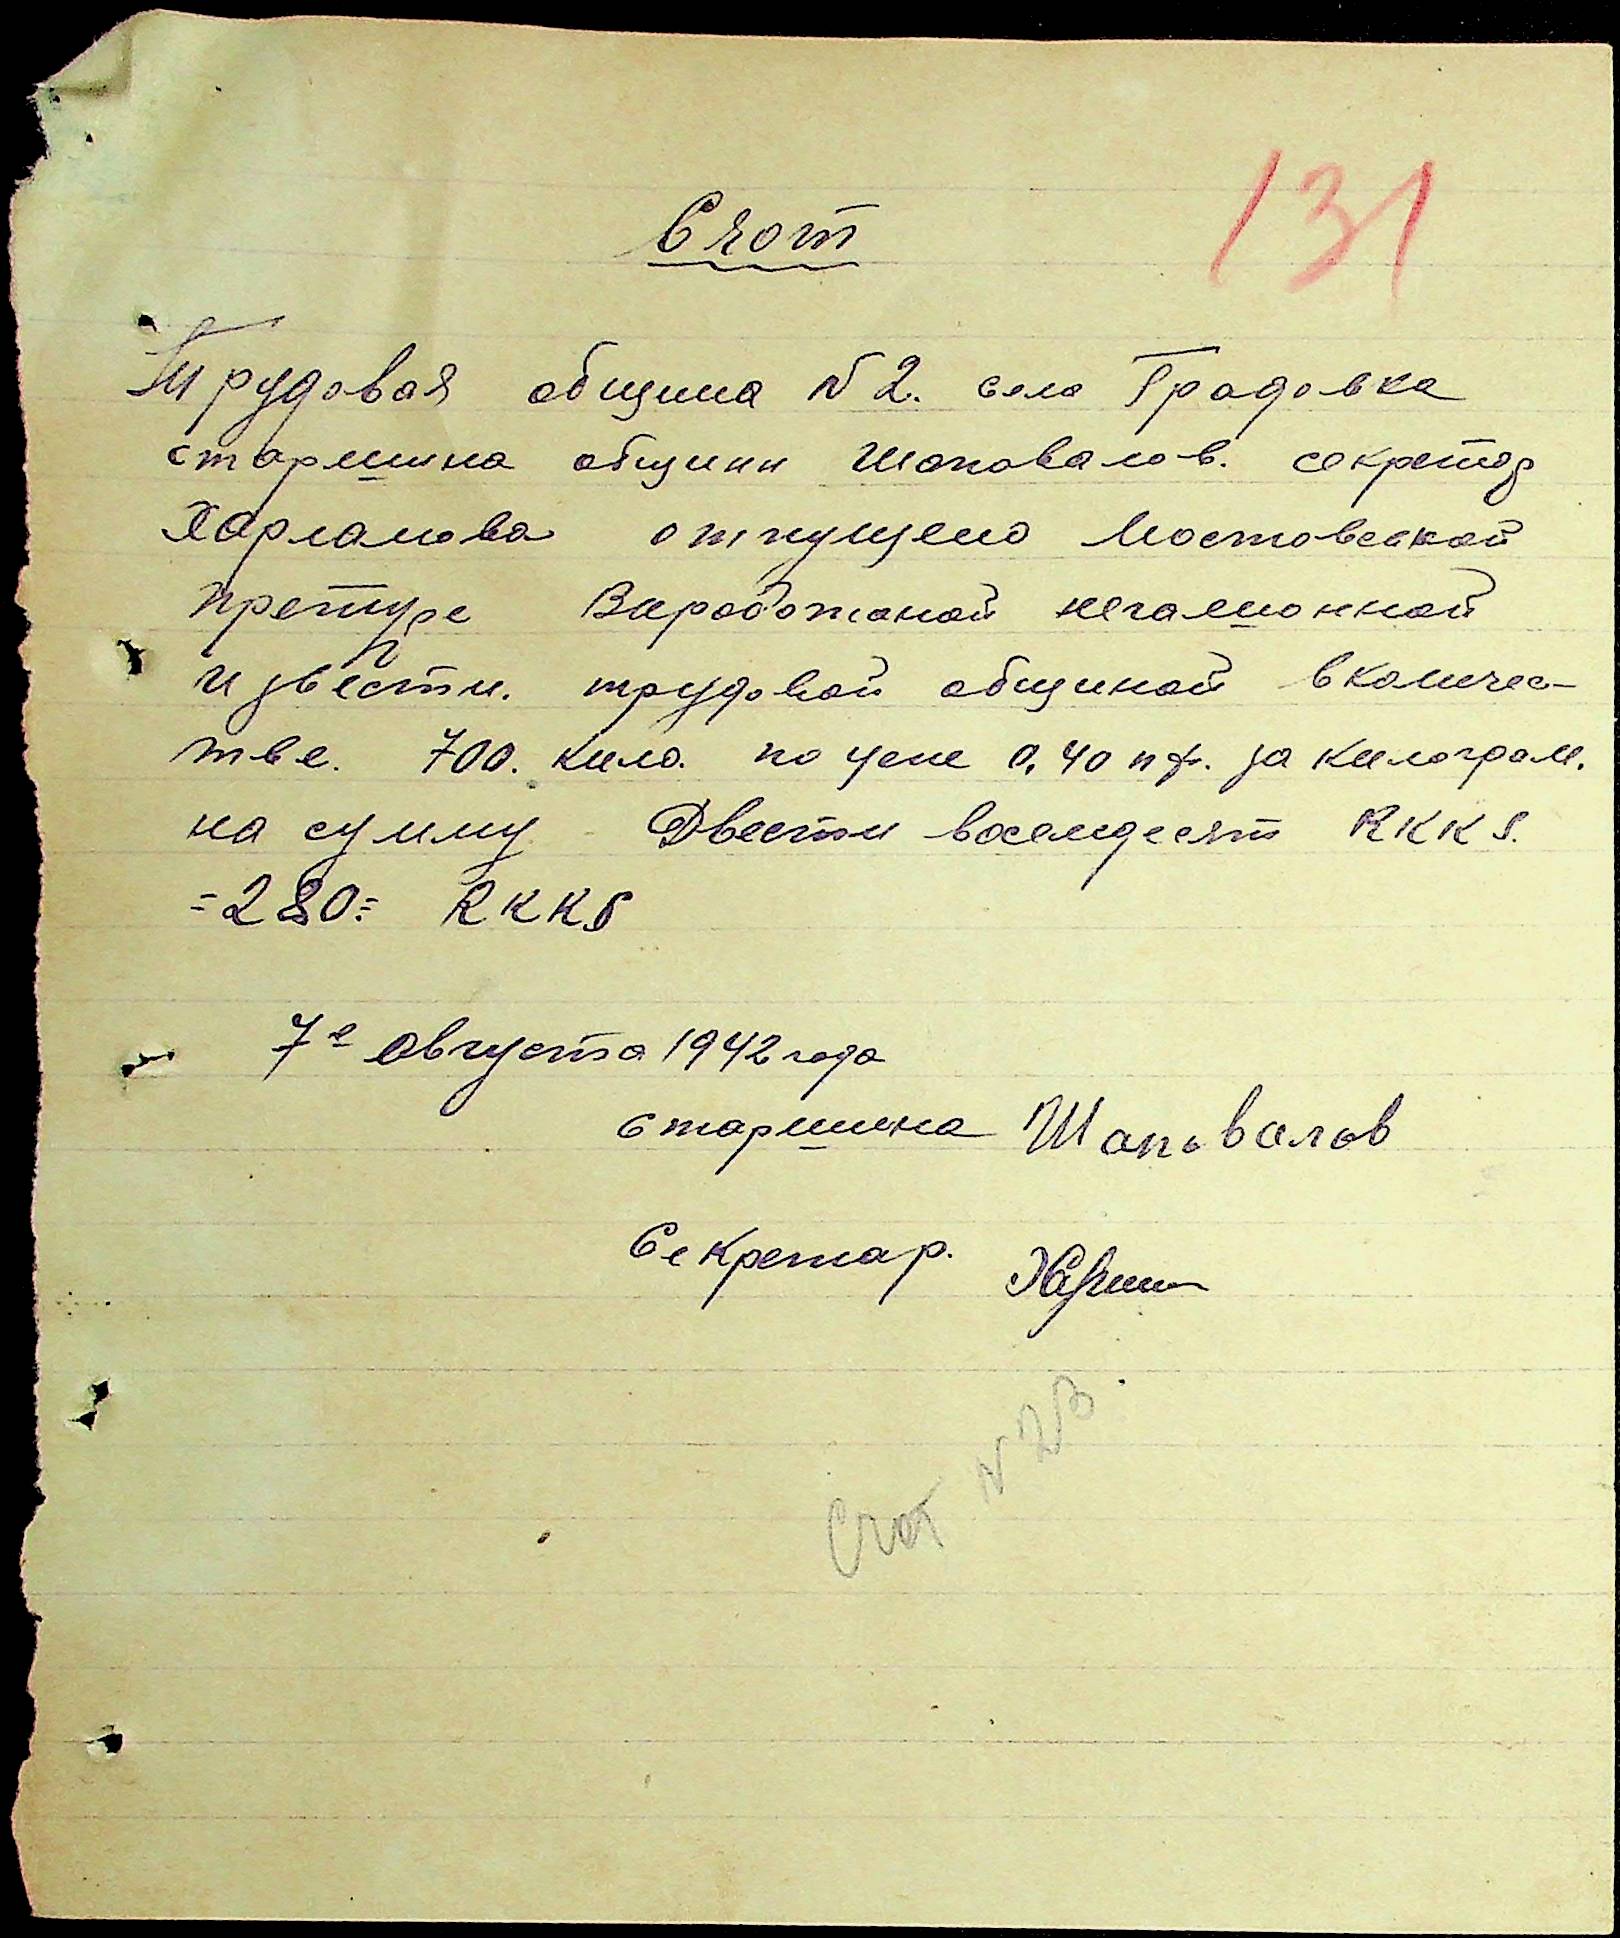 131
Счот
Трудовая община N 2. село Градовка
старшина общини Шаповалов. секретар
Харламова отпущено Мостовской
претуре Вироботаной негашонной
извести. трудовой общиной вколичес-
тве. 700. кило. по цене 0,40 пф. за килограм.
на сумму Двести восемдесят RKKS.
=280= RKKS
7е августа 1942 года
старшина Шаповалов
Секретар.
Счот N 23.